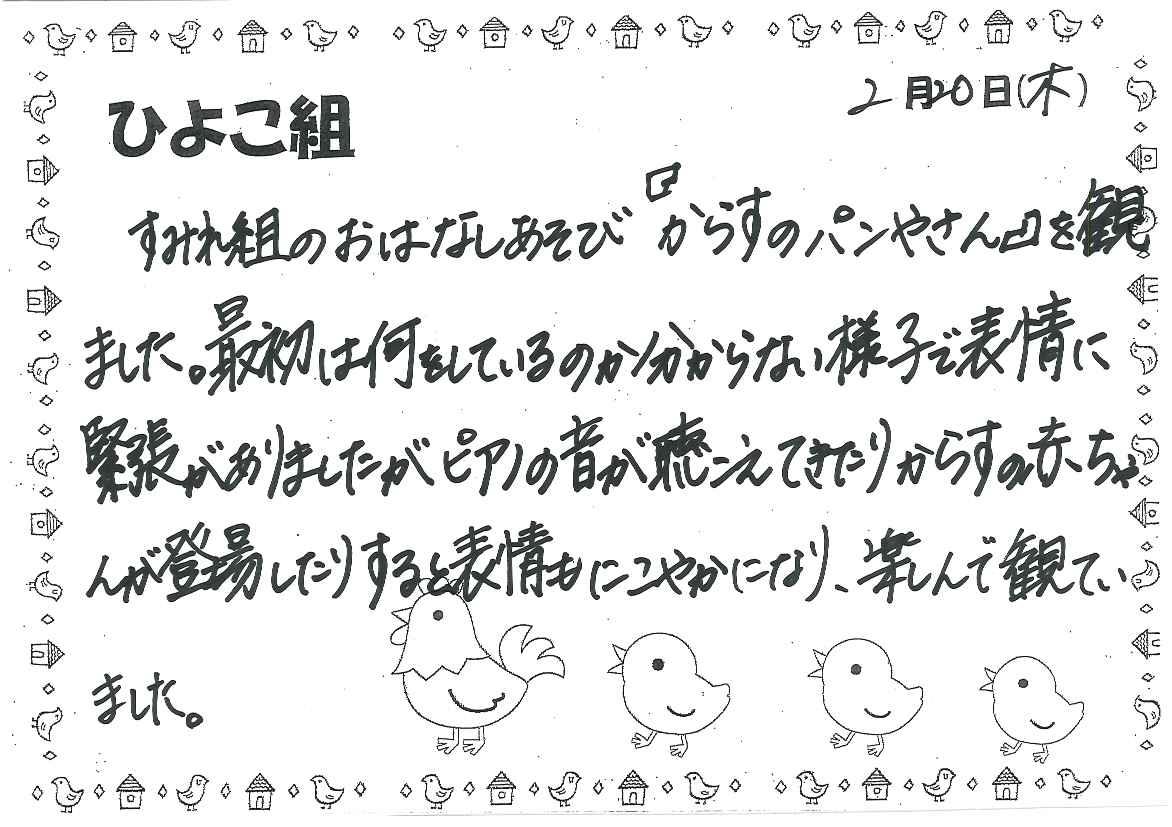 2月20日(木)
ひよこ組
すみれ組のおはなしあそび『からすのパンやさん』を観
ました。最初は何をしているのか分からない様子で表情に
緊張がありましたがピアノの音が聴こえてきたりからすの赤ちゃ
んが登場したりすると表情もにこやかになり、楽しんで観てい
ました。